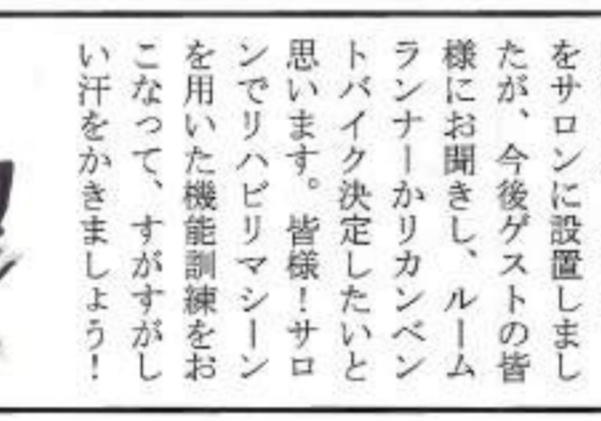 をサロンに設置しまし
たが、今後ゲストの皆
様にお聞きし、ルーム
ランナーかリカンベン
トバイク決定したいと
思います。皆様！サロ
ンでリハビリマシーン
を用いた機能訓練をお
こなって、すがすがし
い汗をかきましょう！